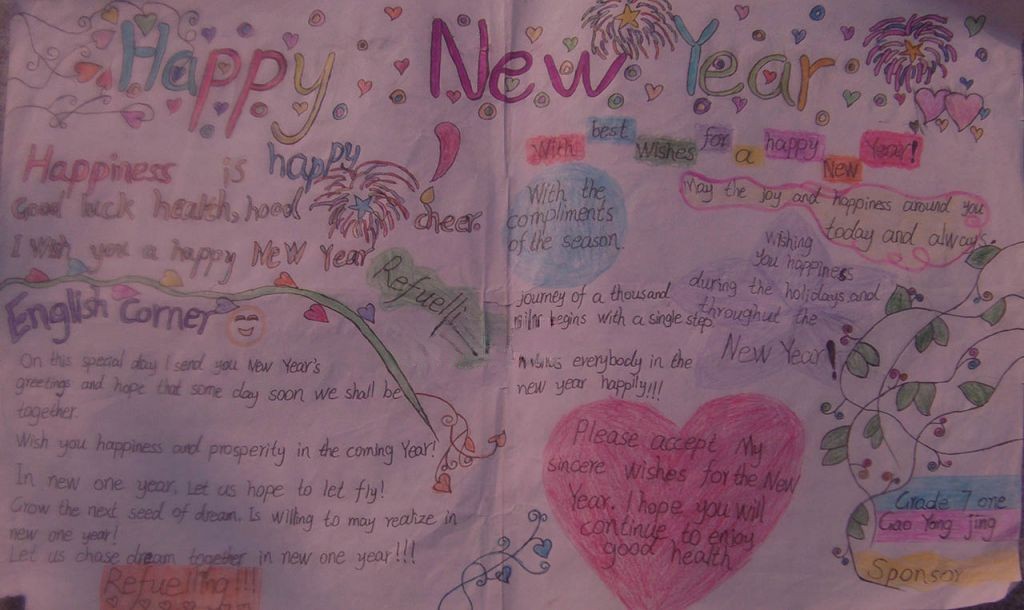 Happy New Year
Happiness is happy
Good luck health, hood cheer.
I wish you a happy New Year
Refuelli
English Corner
On this special day I send you New Year's
greetings and hope that some day soon we shall be
together.
Wish you happiness and prosperity in the coming Year!
In new one year, Let us hope to let fly!
Grow the next seed of dream. Is willing to may realize in
new one year!
Let us chase dream together in new one year!!!
Refuelling!!!
With best wishes for a happy New Year!
With the
compliments
of the season.
May the joy and happiness around you
today and always.
Wishing
you happiness
during the holidays and
throughout the
New Year!
journey of a thousand
begins with a single step
everybody in the
new year happily!!!
Please accept My
sincere wishes for the New
Year. I hope you will
continue to enjoy
good health
Grade 7 one
Gao Yong jing
Sponsor